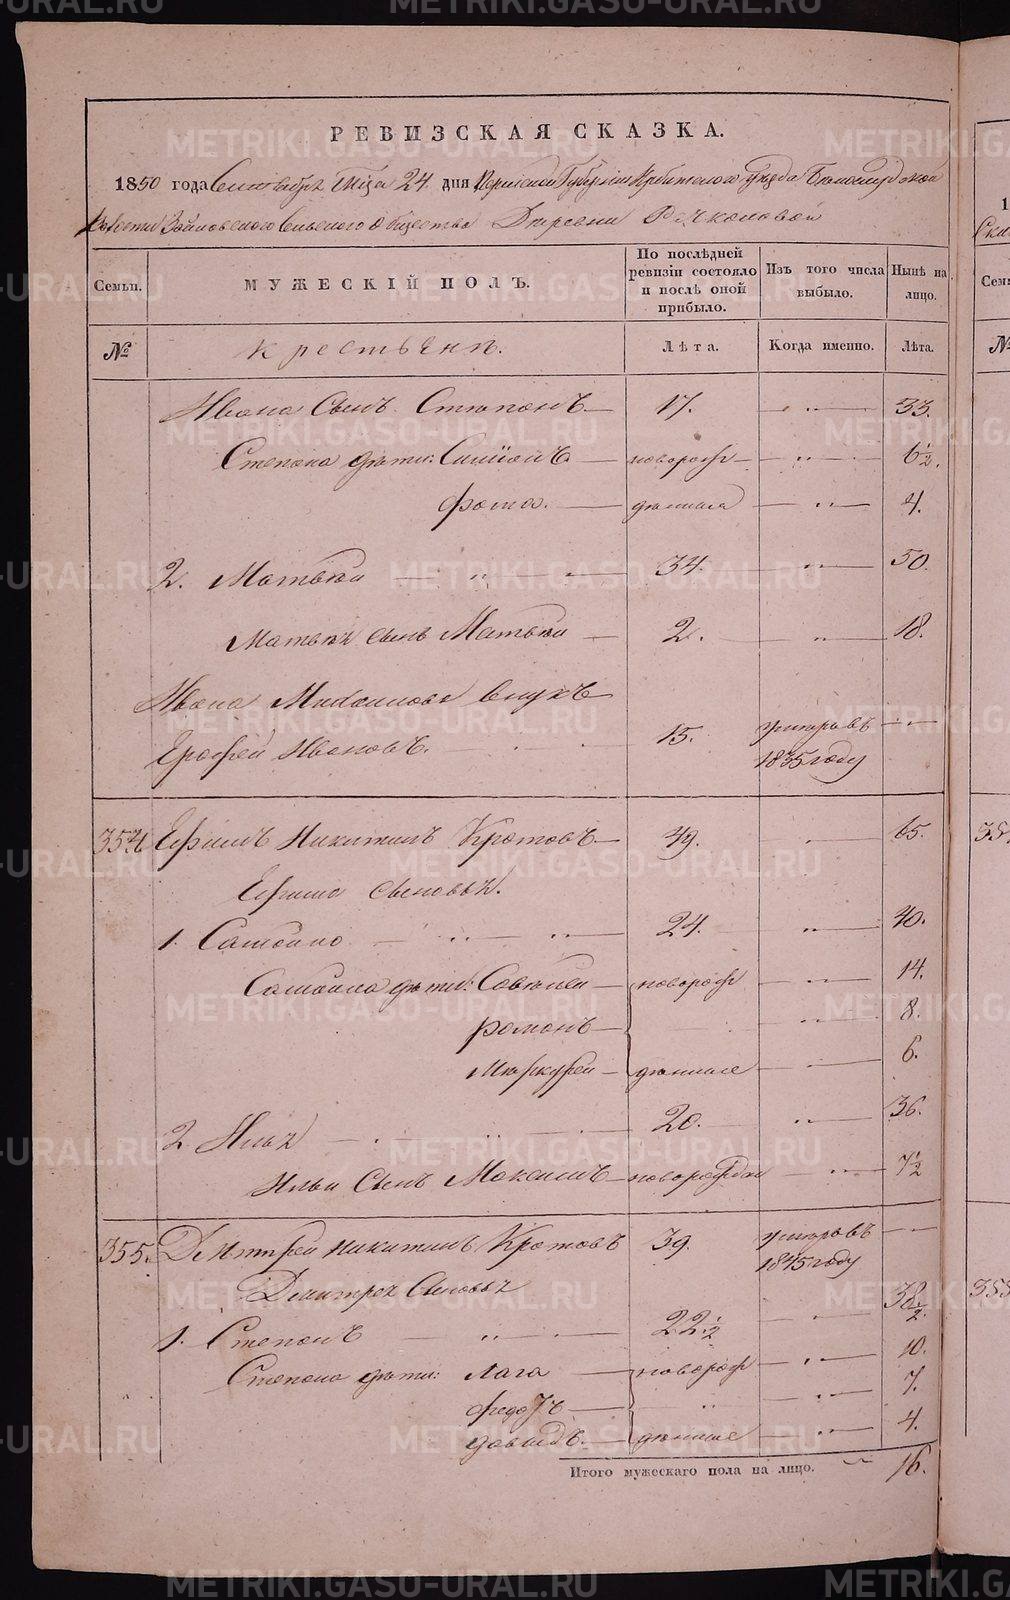 РЕВИЗСКАЯ СКАЗКА.
1850 года Сентября Мца 24 дня Пермской Губернии Ирбитского Уезда
Волости Зайковского Сельского Общества Деревни Речкаловой
Семьи. МУЖЕСКІЙ ПОЛЪ. По послѣдней ревизіи состояло и послѣ оной прибыло. Изъ того числа выбыло. Нынѣ на лицо.
№ Крестьянъ. Лѣта. Когда именно. Лѣта.
Ивана Сынъ Степанъ 17. — „ — 33.
Степана дѣти: Симіонъ новорож — „ — 6½.
Фома. денныя — „ — 4.
2. Матвѣй — „ — 34. — „ — 50.
Матвѣя сынъ Матвѣй 2. — „ — 18.
Ивана внукъ
Ерофей Ивановъ. 15. умеръ въ 1835 году — „ —
354 Ефимъ Никитинъ Кротовъ 49. — „ — 65.
Ефима сыновья.
1. Самойло — „ — „ — 24. — „ — 40.
Самойла дѣти: Савѣлей новорож — „ — 14.
Романъ — „ — 8.
Меркурей денные — „ — 6.
2. Илья 20. — „ — 36.
Ильи Сынъ Максимъ новорожден — „ — 7½
355. Дмитрей Никитинъ Кротовъ 39. умеръ въ 1845 году — „ —
Дмитрея Сыновья
1. Степанъ — „ — 22½ — „ — 38½.
Степана дѣти: новорож — „ — 10.
Федотъ „ — „ — 7.
Давыдъ. денные — „ — 4.
Итого мужескаго пола на лицо. 16.
METRIKI.GASO-URAL.RU